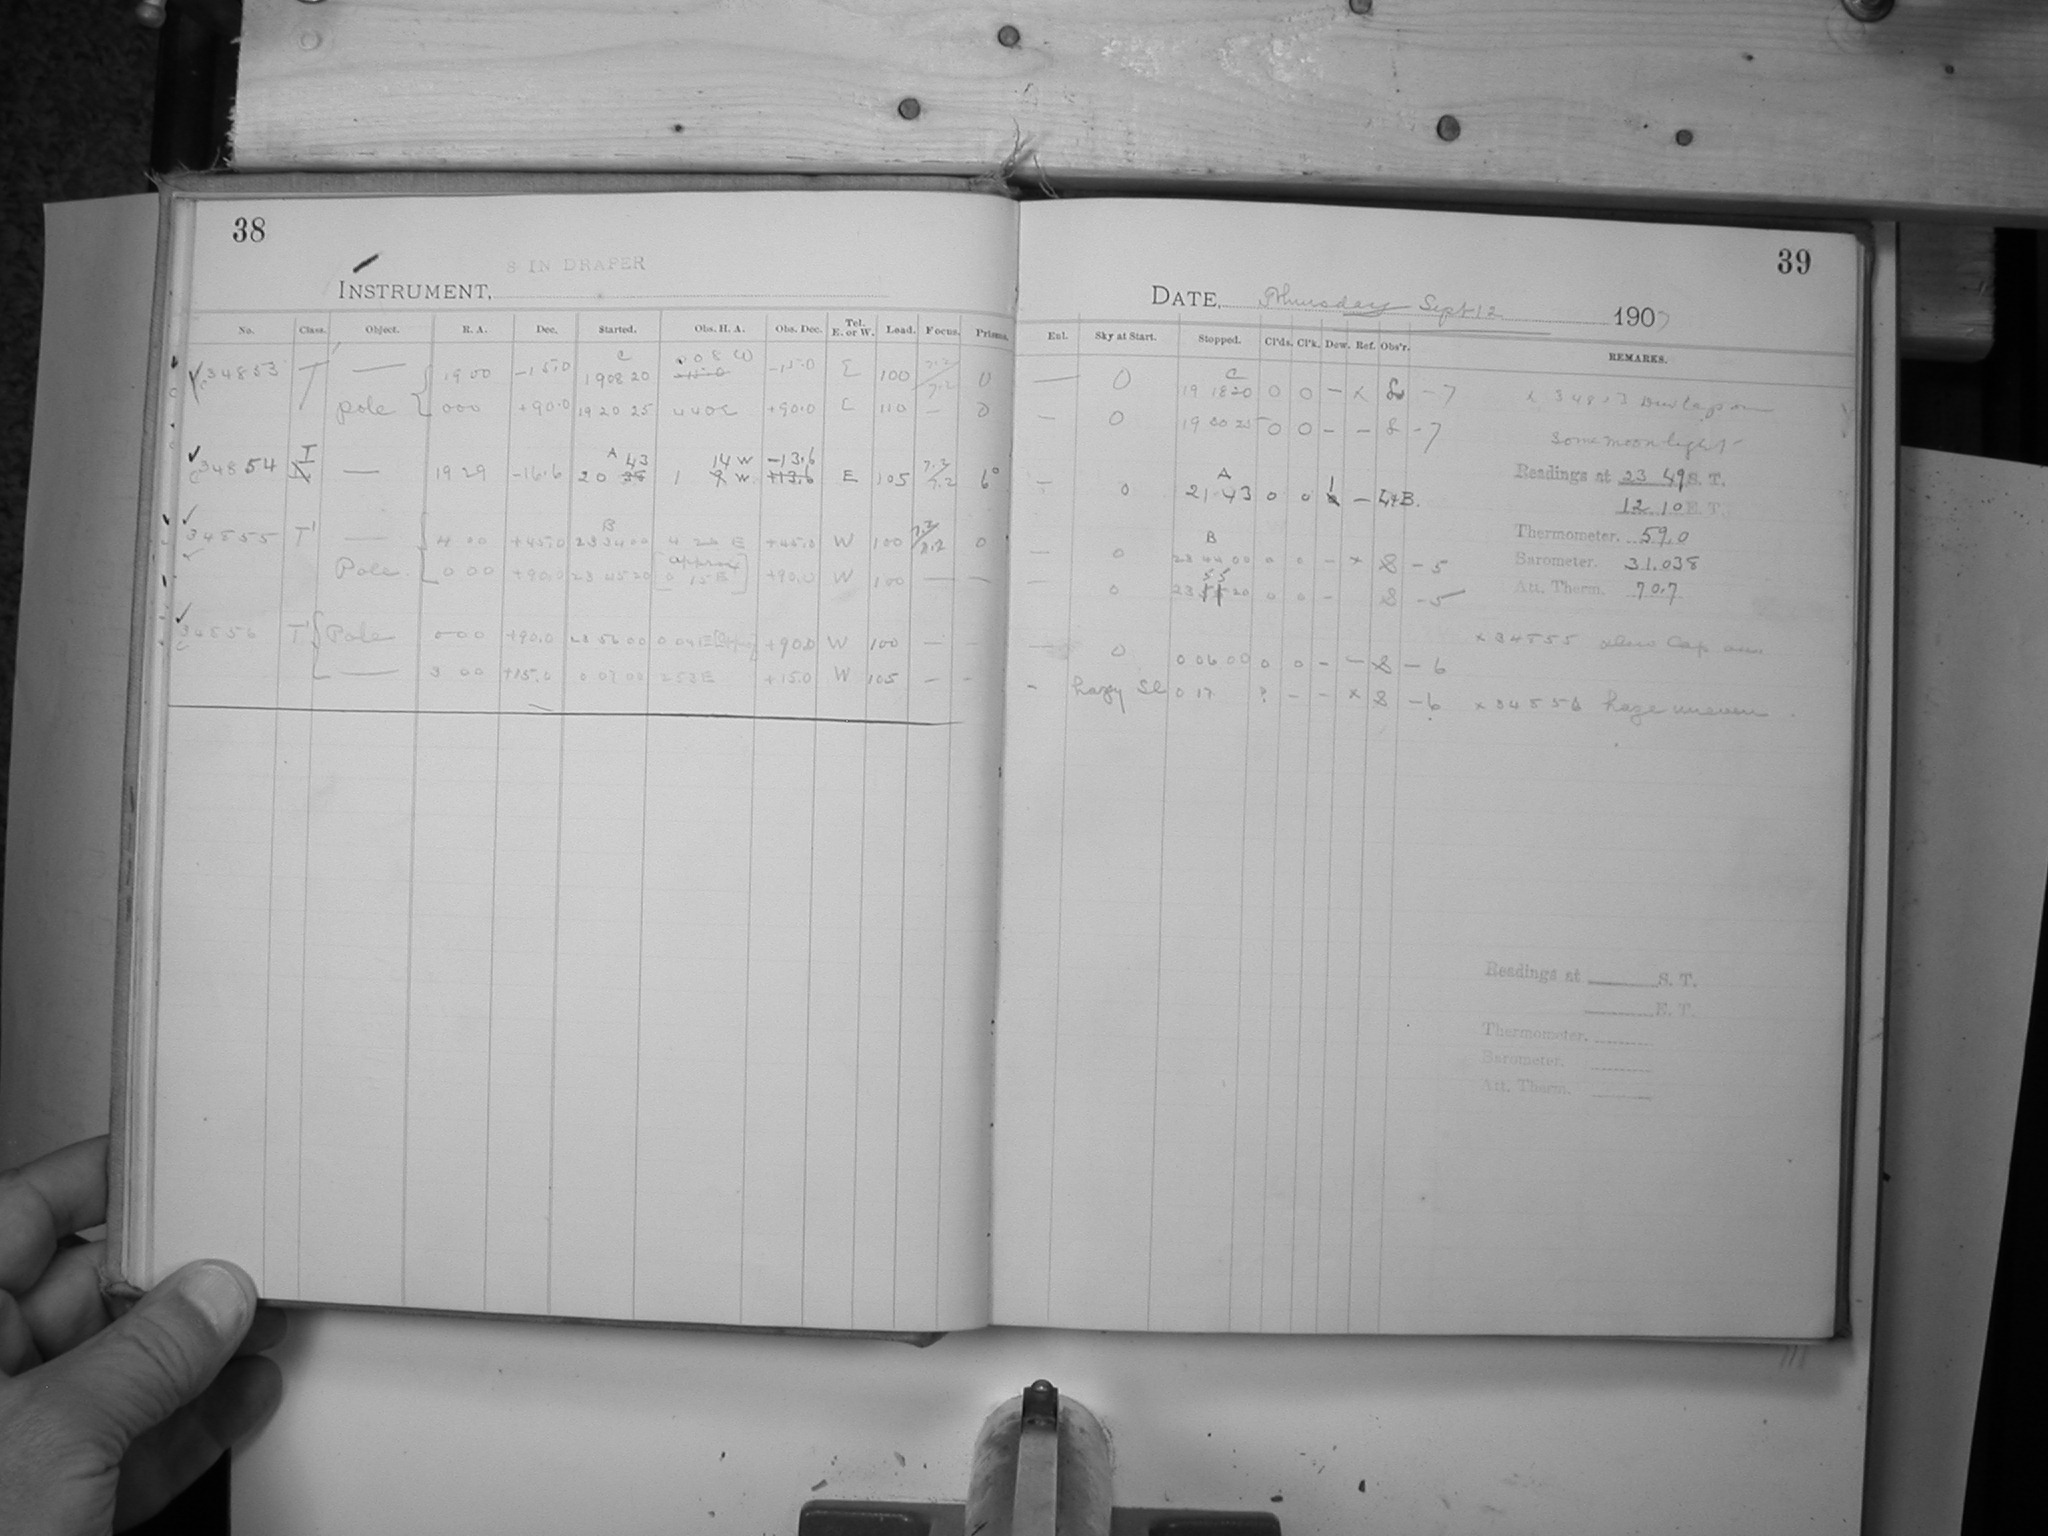 38
8 IN DRAPER
INSTRUMENT,
No. Class. Object. R. A. Dec. Started. Obs. H. A. Obs. Dec. Tel. E. or W. Load. Focus. Prisms.
C 0 08 W
34853 T — 19 00 -15.0 19 08 20 -15.0 E 100 7.2 0
Pole 0 00 +90.0 19 20 25 +90.0 E 110 — 0
T A 43 14 W -13.6
34854 — 19 29 -16.6 20 1 W +13.6 E 105 7.2 6°
B
34855 T' — 4 00 +45.0 23 34 00 4 26 E +45.0 W 100 0
approx
Pole 0 00 +90.0 23 45 20 0 15 E +90.0 W 100 — —
34856 T' Pole 0 00 +90.0 23 56 00 +90.0 W 100 — -
— 3 00 +15.0 0 07 00 2 53 E +15.0 W 105 — -
39
DATE, Thursday Sept 12 1907
Enl. Sky at Start. Stopped. Cl'ds. Cl'k. Dew. Ref. Obs'r. REMARKS.
C
— 0 19 18 20 0 0 — x -7
— 0 19 30 25 0 0 - - -7
some moonlight
Readings at 23 49 S. T.
A
— 0 21 43 0 0 1 —
12 10 E. T.
B
Thermometer. 59.0
— 0 23 44 00 0 0 - x S - 5
Barometer. 31.038
55
- 0 23 20 0 0 - S -5
Att. Therm. 70.7
x 34855 dew cap on
— 0 0 06 00 0 0 - - S - 6
- hazy 0 17 ? - - x S - 6 x 34856 haze uneven
Readings at S. T.
E. T.
Thermometer.
Barometer.
Att. Therm.